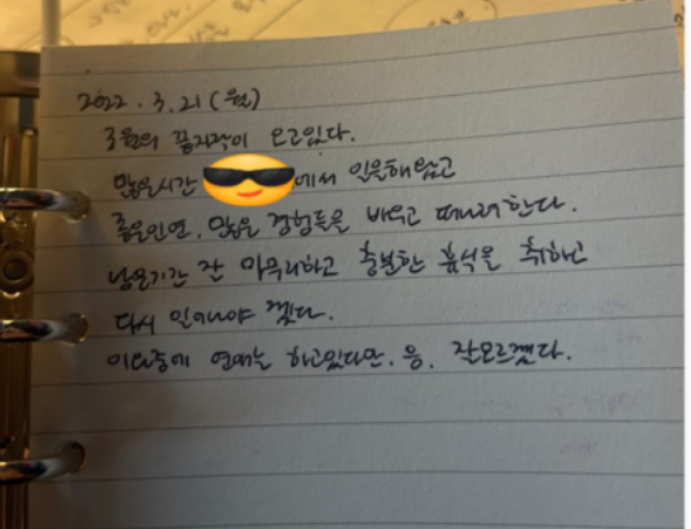 2022. 3. 21 (월)
3월의 끝자락이 오고있다.
많은시간 에서 일을해왔고
좋은인연, 많은 경험들을 배우고 떠나려한다.
남은기간 잘 마무리하고 충분한 휴식을 취하고
다시 일어나야 겠다.
이와중에 연애는 하고있다만. 음. 잘모르겠다.